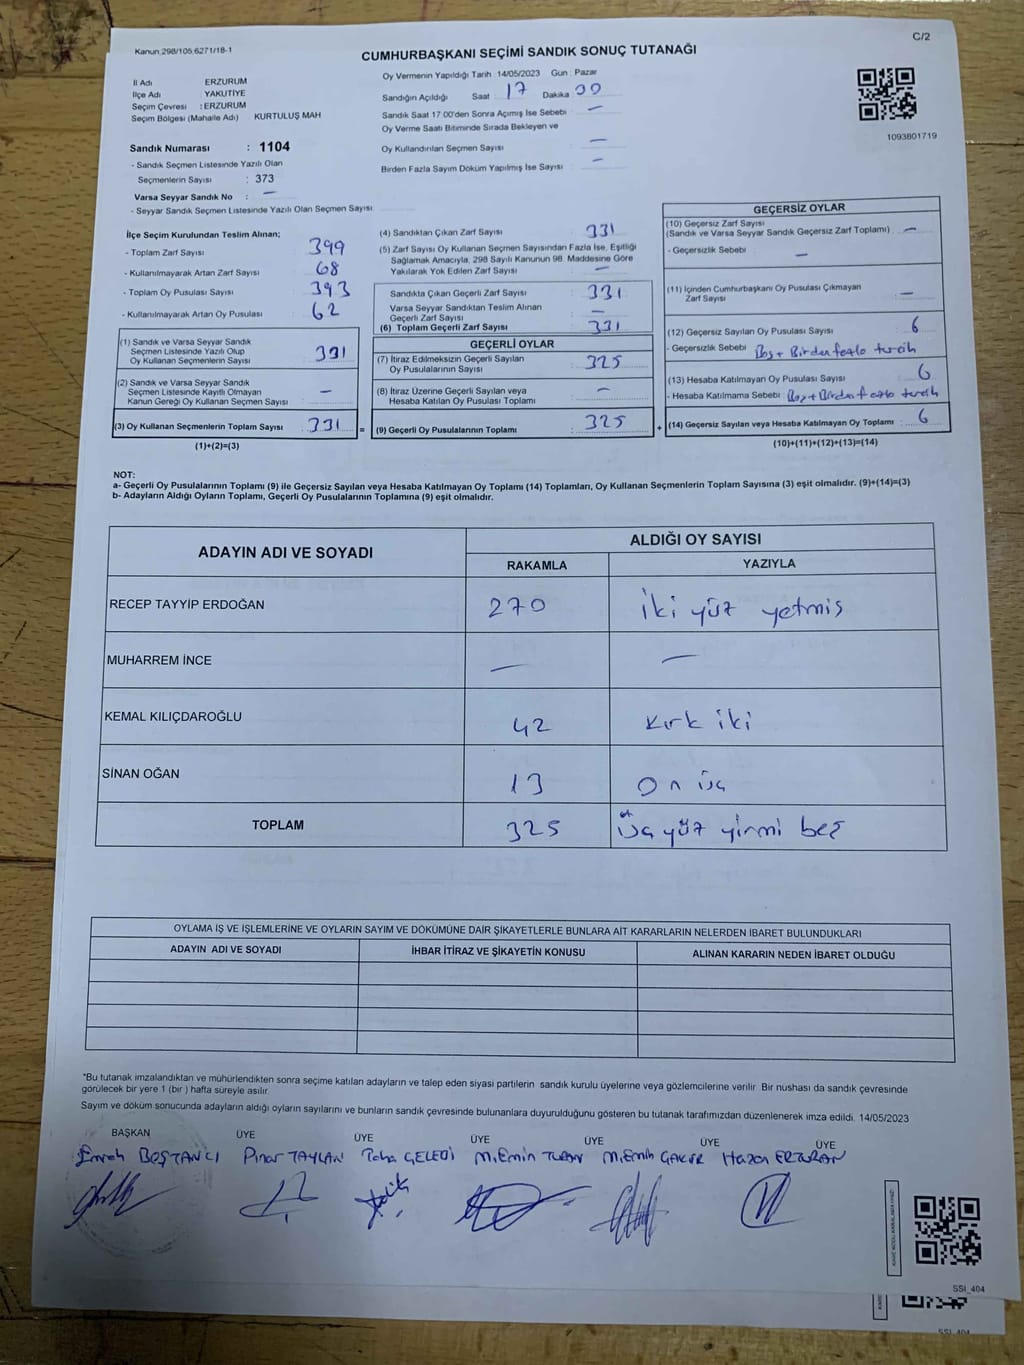 Kanun 298/105 6271/18-1
C/2
CUMHURBAŞKANI SEÇİMİ SANDIK SONUÇ TUTANAĞI
İl Adı ERZURUM
İlçe Adı YAKUTİYE
Seçim Çevresi : ERZURUM
Seçim Bölgesi (Mahalle Adı) KURTULUŞ MAH
Oy Vermenin Yapıldığı Tarih 14/05/2023 Gün : Pazar
Sandığın Açıldığı Saat 17 Dakika 00
Sandık Saat 17 00'den Sonra Açılmış İse Sebebi —
Oy Verme Saati Bitiminde Sırada Bekleyen ve
Oy Kullandırılan Seçmen Sayısı —
Birden Fazla Sayım Döküm Yapılmış İse Sayısı —
1093801719
Sandık Numarası : 1104
- Sandık Seçmen Listesinde Yazılı Olan
Seçmenlerin Sayısı : 373
Varsa Seyyar Sandık No : —
- Seyyar Sandık Seçmen Listesinde Yazılı Olan Seçmen Sayısı
İlçe Seçim Kurulundan Teslim Alınan;
- Toplam Zarf Sayısı 399
- Kullanılmayarak Artan Zarf Sayısı 68
- Toplam Oy Pusulası Sayısı 393
- Kullanılmayarak Artan Oy Pusulası 62
(1) Sandık ve Varsa Seyyar Sandık
Seçmen Listesinde Yazılı Olup
Oy Kullanan Seçmenlerin Sayısı 331
(2) Sandık ve Varsa Seyyar Sandık
Seçmen Listesinde Kayıtlı Olmayan
Kanun Gereği Oy Kullanan Seçmen Sayısı —
(3) Oy Kullanan Seçmenlerin Toplam Sayısı 331 =
(1)+(2)=(3)
(4) Sandıktan Çıkan Zarf Sayısı 331
(5) Zarf Sayısı Oy Kullanan Seçmen Sayısından Fazla İse, Eşitliği
Sağlamak Amacıyla, 298 Sayılı Kanunun 98. Maddesine Göre
Yakılarak Yok Edilen Zarf Sayısı —
Sandıkta Çıkan Geçerli Zarf Sayısı : 331
Varsa Seyyar Sandıktan Teslim Alınan
Geçerli Zarf Sayısı —
(6) Toplam Geçerli Zarf Sayısı : 331
GEÇERLİ OYLAR
(7) İtiraz Edilmeksizin Geçerli Sayılan
Oy Pusulalarının Sayısı : 325
(8) İtiraz Üzerine Geçerli Sayılan veya
Hesaba Katılan Oy Pusulası Toplamı : —
(9) Geçerli Oy Pusulalarının Toplamı : 325 +
GEÇERSİZ OYLAR
(10) Geçersiz Zarf Sayısı
(Sandık ve Varsa Seyyar Sandık Geçersiz Zarf Toplamı) —
- Geçersizlik Sebebi : —
(11) İçinden Cumhurbaşkanı Oy Pusulası Çıkmayan
Zarf Sayısı —
(12) Geçersiz Sayılan Oy Pusulası Sayısı : 6
- Geçersizlik Sebebi Boş + Birden fazla tercih
(13) Hesaba Katılmayan Oy Pusulası Sayısı : 6
- Hesaba Katılmama Sebebi : Boş + Birden fazla tercih
(14) Geçersiz Sayılan veya Hesaba Katılmayan Oy Toplamı : 6
(10)+(11)+(12)+(13)=(14)
NOT:
a- Geçerli Oy Pusulalarının Toplamı (9) ile Geçersiz Sayılan veya Hesaba Katılmayan Oy Toplamı (14) Toplamları, Oy Kullanan Seçmenlerin Toplam Sayısına (3) eşit olmalıdır. (9)+(14)=(3)
b- Adayların Aldığı Oyların Toplamı, Geçerli Oy Pusulalarının Toplamına (9) eşit olmalıdır.
ADAYIN ADI VE SOYADI ALDIĞI OY SAYISI
RAKAMLA YAZIYLA
RECEP TAYYİP ERDOĞAN 270 İki yüz yetmiş
MUHARREM İNCE — —
KEMAL KILIÇDAROĞLU 42 Kırk iki
SİNAN OĞAN 13 On üç
TOPLAM 325 Üç yüz yirmi beş
OYLAMA İŞ VE İŞLEMLERİNE VE OYLARIN SAYIM VE DÖKÜMÜNE DAİR ŞİKAYETLERLE BUNLARA AİT KARARLARIN NELERDEN İBARET BULUNDUKLARI
ADAYIN ADI VE SOYADI İHBAR İTİRAZ VE ŞİKAYETİN KONUSU ALINAN KARARIN NEDEN İBARET OLDUĞU
*Bu tutanak imzalandıktan ve mühürlendikten sonra seçime katılan adayların ve talep eden siyasi partilerin sandık kurulu üyelerine veya gözlemcilerine verilir. Bir nüshası da sandık çevresinde
görülecek bir yere 1 (bir ) hafta süreyle asılır.
Sayım ve döküm sonucunda adayların aldığı oyların sayılarını ve bunların sandık çevresinde bulunanlara duyurulduğunu gösteren bu tutanak tarafımızdan düzenlenerek imza edildi. 14/05/2023
BAŞKAN ÜYE ÜYE ÜYE ÜYE ÜYE ÜYE
Emrah BOSTANCI Pınar TAYLAN Taha GELEDİ M.Emin TURAN M.Emin ÇAKIR Hazan ERTURAN
SSI_404
SSI_404